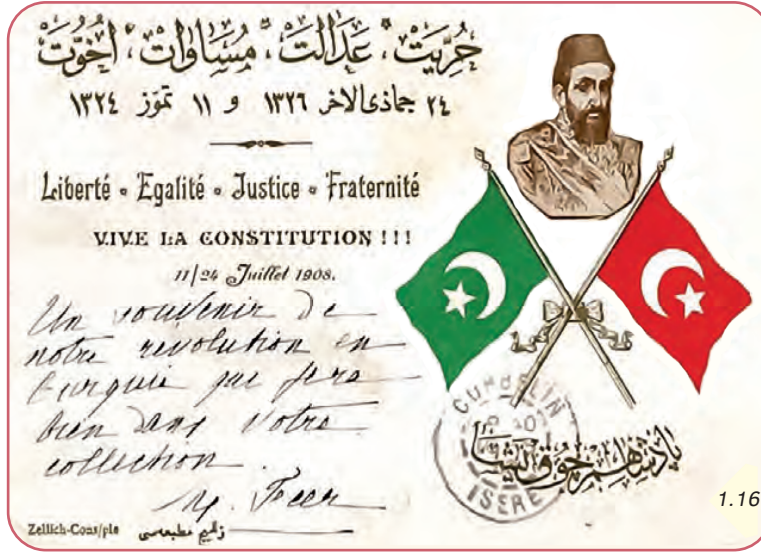 حُرِّيَت، عَدَالَت، مُسَاوَات، اُخُوَّت
٢٤ جماذى الاخر ١٣٢٦ و ١١ تموز ١٣٢٤
Liberté • Egalité • Justice • Fraternité
VIVE LA CONSTITUTION !!!
11/24 Juillet 1908.
Un souvenir de
notre revolution en
Turquie qui fera
bien dans votre
collection.
Zellich-Cons/ple
زليج مطبعه‌سى
CORBELIN
ISÈRE
پادشاهم چوق يشا
1.16